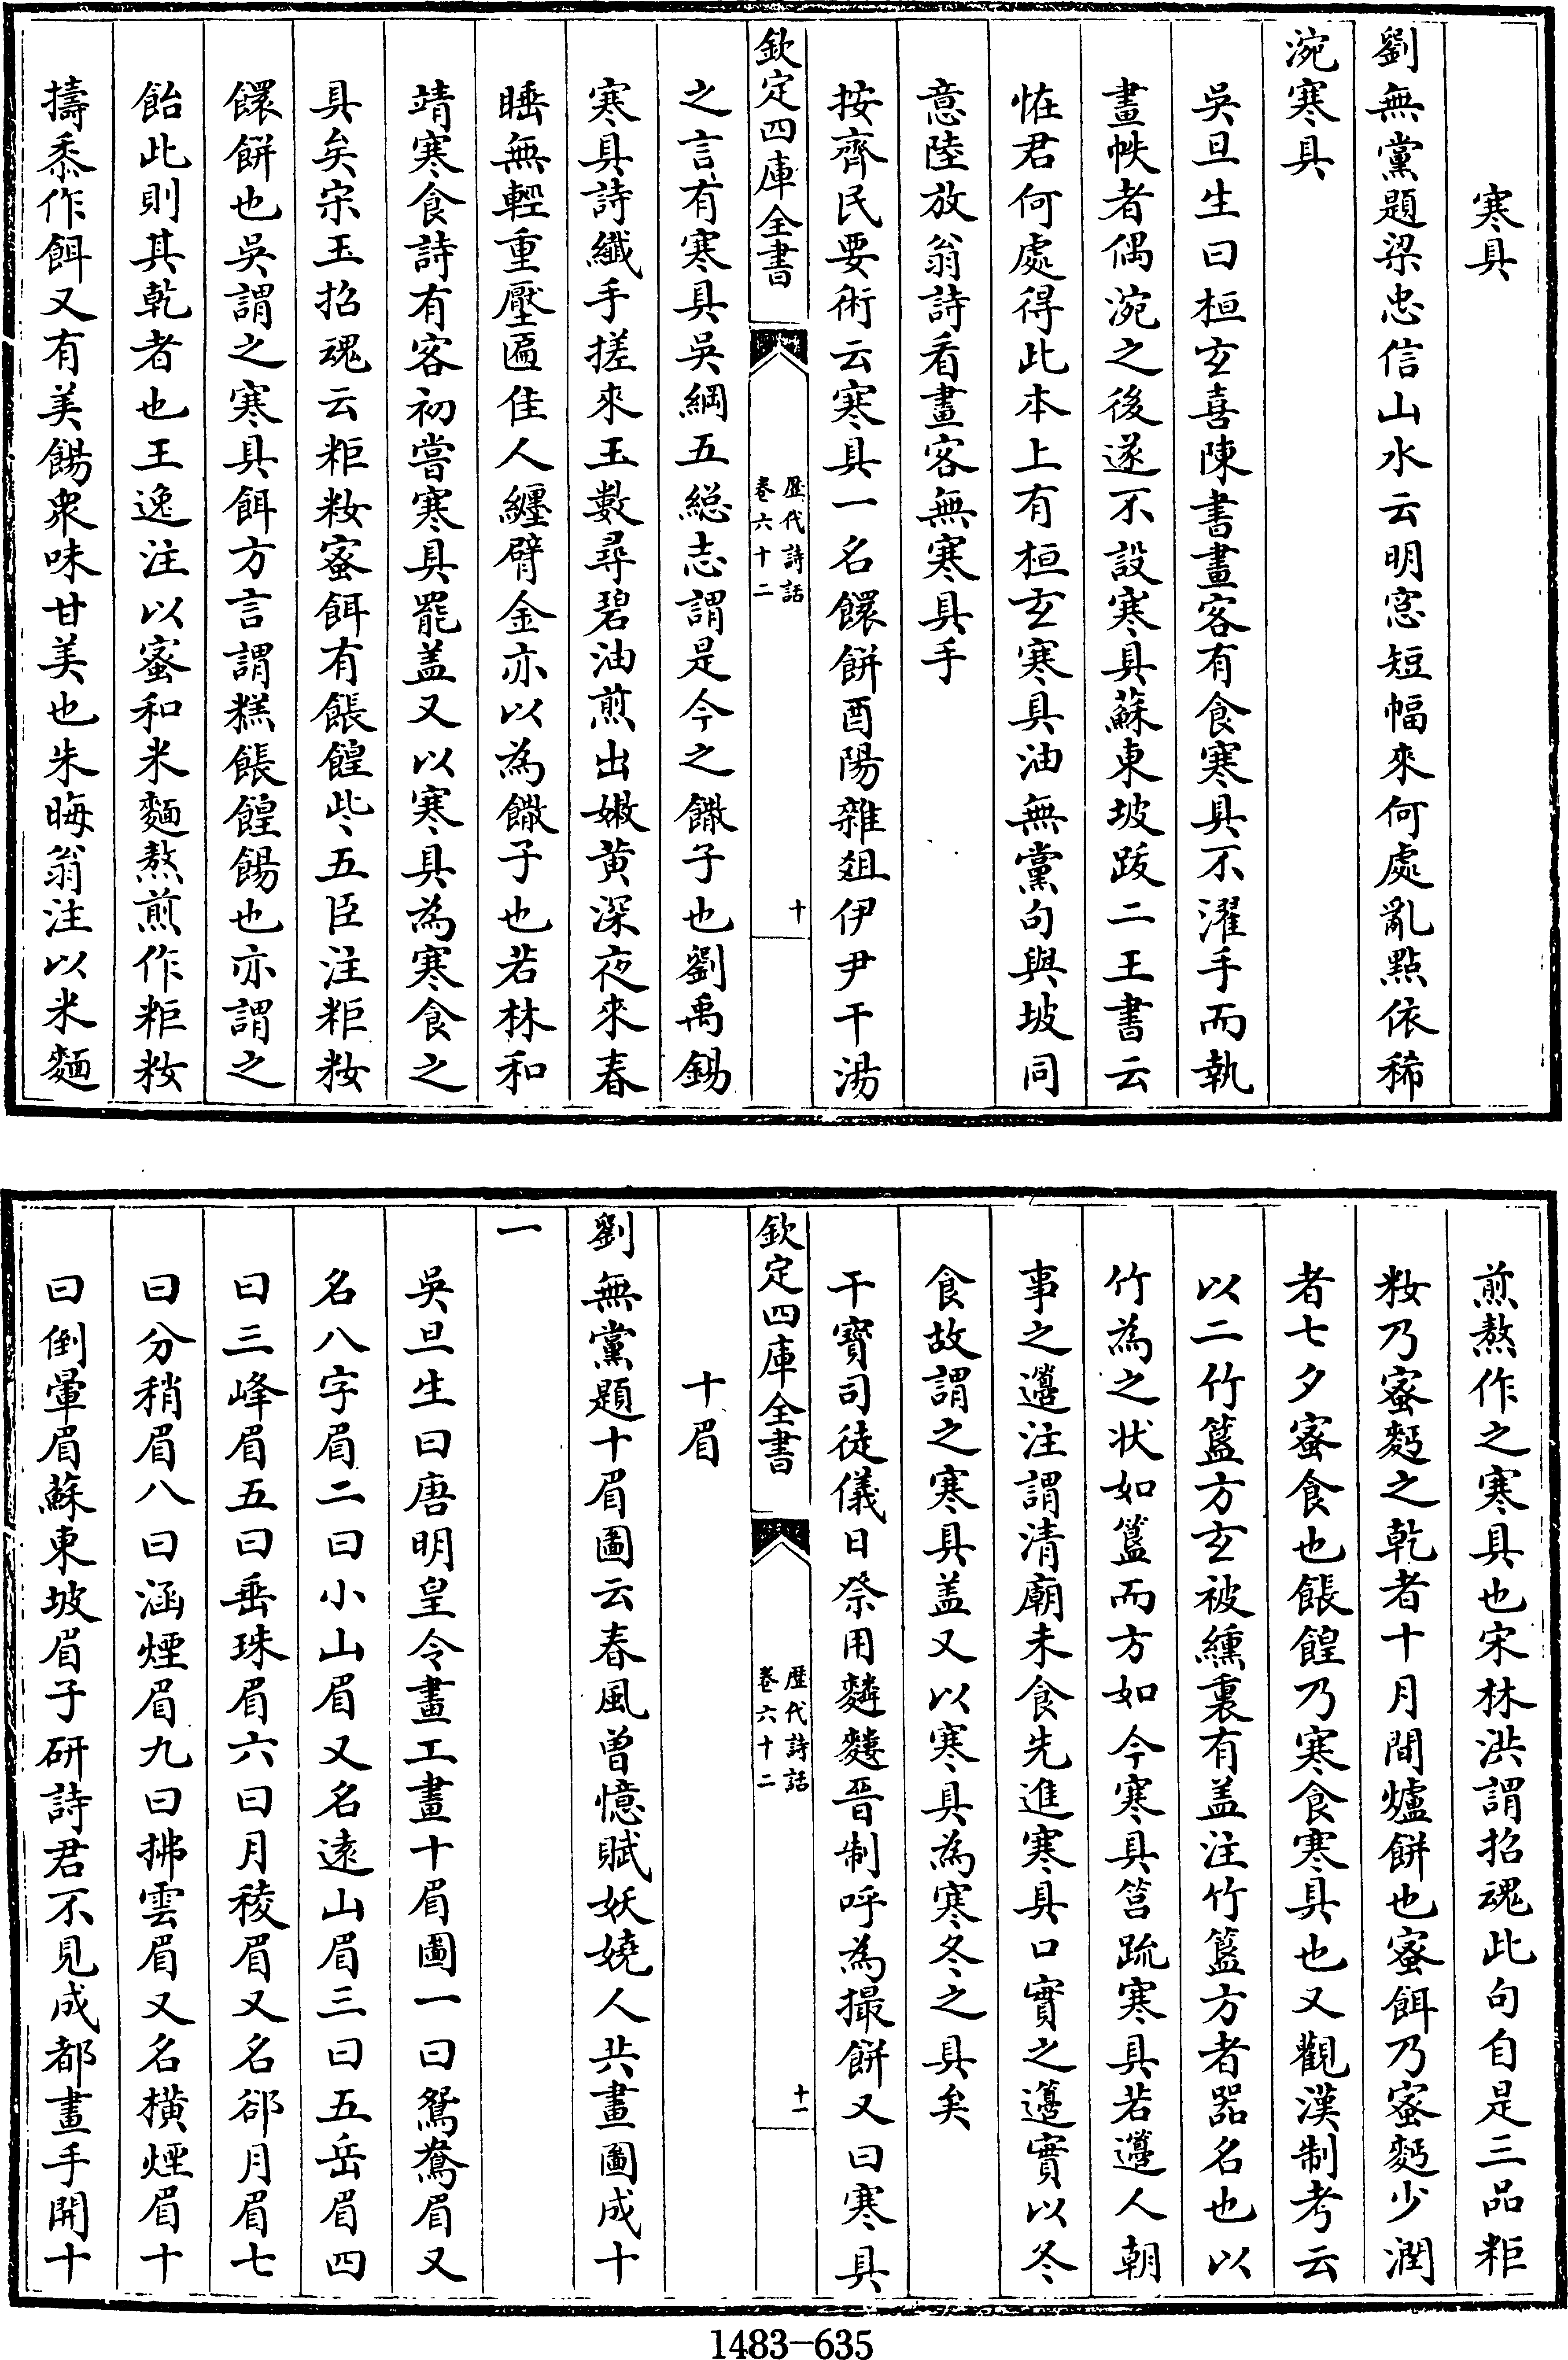 寒具
劉無黨題梁忠信山水云明窓短幅來何處亂點依稀
涴寒具
吳旦生曰桓玄喜陳書畫客有食寒具不濯手而執
畫帙者偶涴之後遂不設寒具蘇東坡跋二王書云
恠君何處得此本上有桓玄寒具油無黨句與坡同
意陸放翁詩看畫客無寒具手
按齊民要術云寒具一名饌餅酉陽雜爼伊尹干湯
欽定四庫全書
歴代詩話
卷六十二
十
之言有寒具吳綱五総志謂是今之饊子也劉禹錫
寒具詩纖手搓來玉數尋碧油煎出嫩黄深夜來春
睡無輕重壓匾佳人纏臂金亦以為饊子也若林和
靖寒食詩有客初嘗寒具罷盖又以寒具為寒食之
具矣宗玉招魂云粔籹蜜餌有餦餭些五臣注粔籹
饌餅也吳謂之寒具餌方言謂糕餦餭餳也亦謂之
飴此則其乾者也王逸注以蜜和米麵熬煎作粔籹
擣黍作餌又有美餳衆味甘美也朱晦翁注以米麵
煎熬作之寒具也宋林洪謂招魂此句自是三品粔
籹乃蜜麪之乾者十月間爐餅也蜜餌乃蜜麪少潤
者七夕蜜食也餦餭乃寒食寒具也又觀漢制考云
以二竹簋方玄被纁裏有盖注竹簋方者器名也以
竹為之状如簋而方如今寒具筥疏寒具若籩人朝
事之籩注謂清廟未食先進寒具口實之籩實以冬
食故謂之寒具盖又以寒具為寒冬之具矣
干寳司徒儀日祭用麷䴹晉制呼為撮餅又曰寒具
欽定四庫全書
歴代詩話
卷六十二
十一
十眉
劉無黨題十眉圖云春風曽憶賦妖嬈人共畫圖成十
一
吳旦生曰唐明皇令畫工畫十眉圖一曰鴛鴦眉又
名八字眉二曰小山眉又名遠山眉三曰五岳眉四
曰三峰眉五曰垂珠眉六曰月稜眉又名郤月眉七
曰分稍眉八曰涵煙眉九曰拂雲眉又名横煙眉十
曰倒暈眉蘇東坡眉子研詩君不見成都畫手開十
1483-635